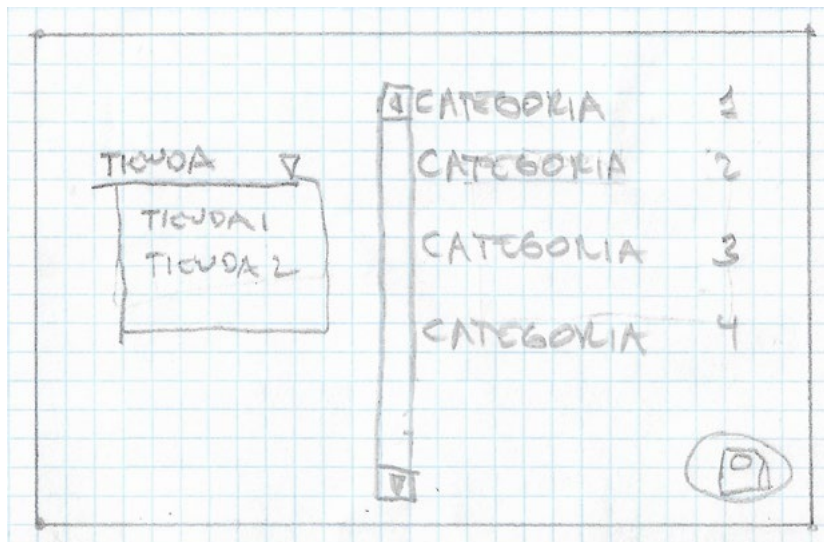 TIENDA
TIENDA 1
TIENDA 2
CATEGORIA 1
CATEGORIA 2
CATEGORIA 3
CATEGORIA 4